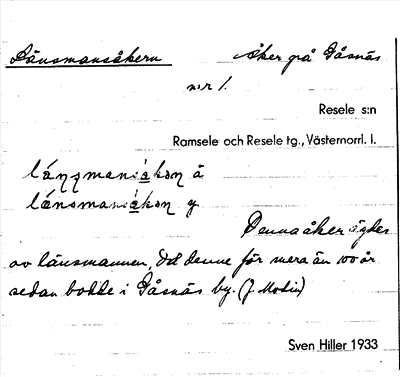 Länsmansåkern Åker på Gåsnäs
nr 1.
Resele s:n
Ramsele och Resele tg., Västernorrl. l.
länsmansåkɘṇ ä
länsmansåkɘṇ y.
Denna åker ägdes
av länsmannen, då denne för mera än 100 år
sedan bodde i Gåsnäs by. (J. Modin)
Sven Hiller 1933